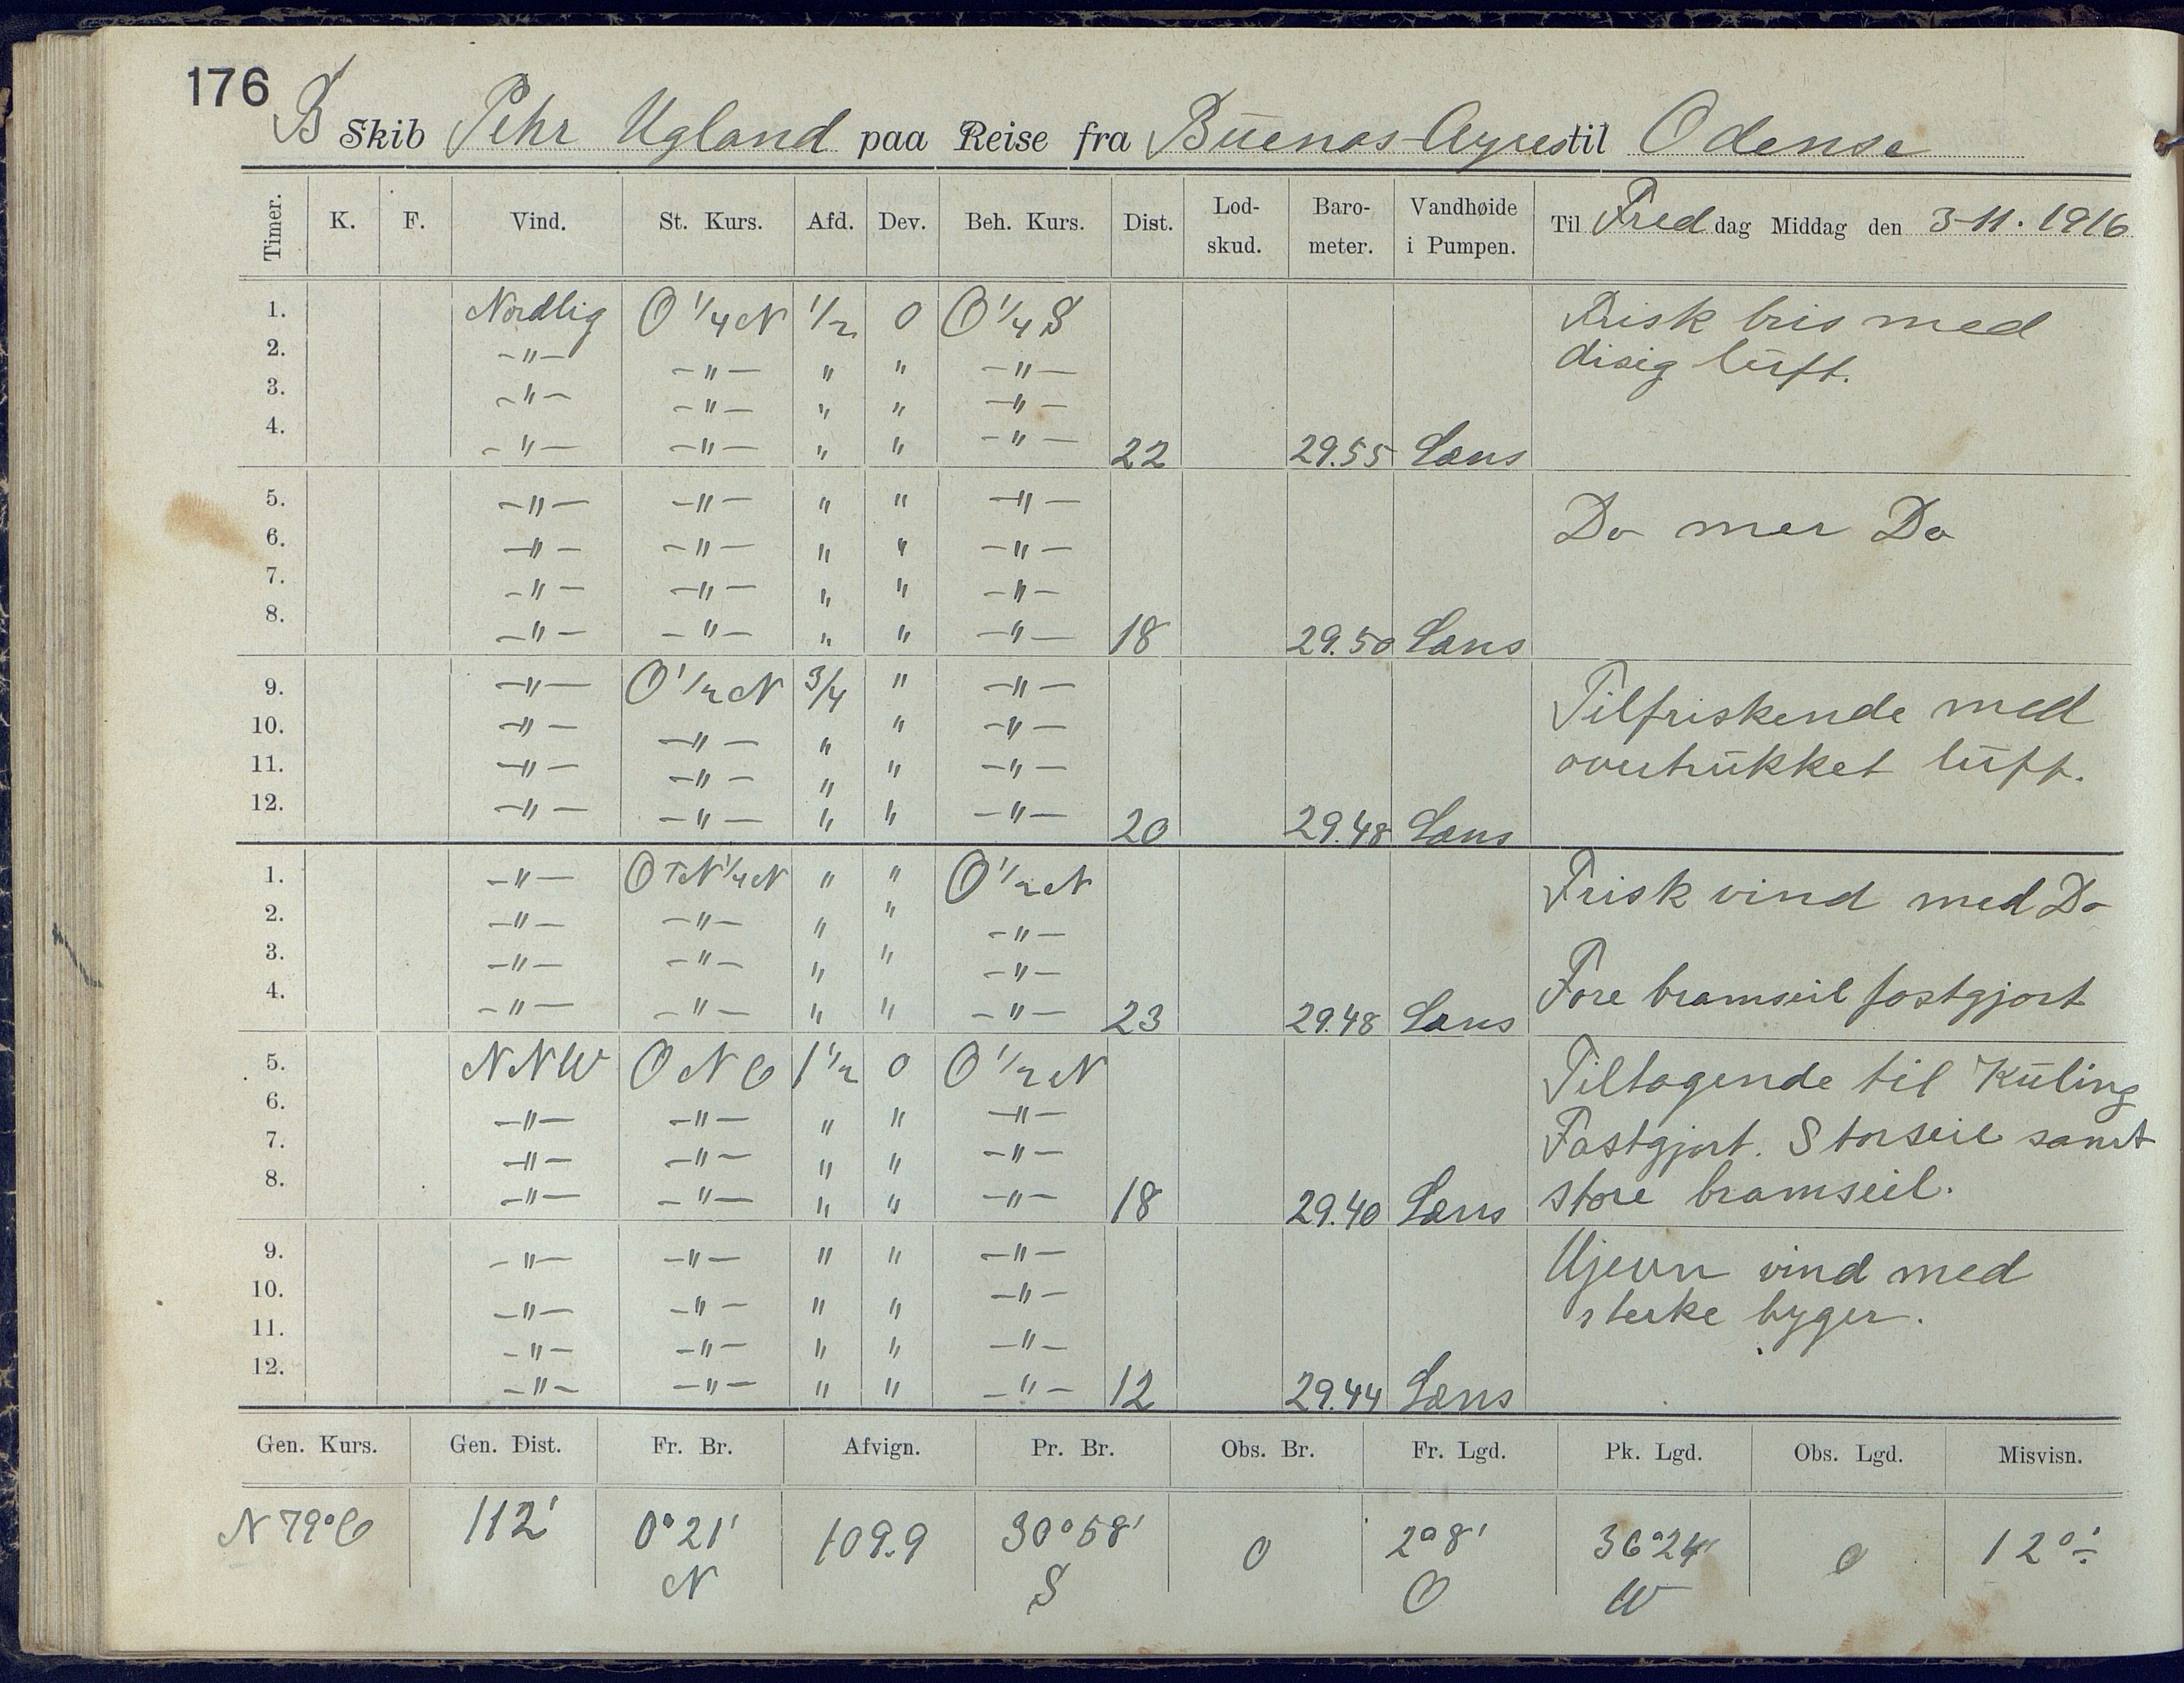 176
B Skib Pehr Ugland paa Reise fra Buenos-Ayres til Odense
Timer. K. F. Vind. St. Kurs. Afd. Dev. Beh. Kurs. Dist. Lod-skud. Baro-meter. Vandhøide i Pumpen. Til Fred dag Middag den 3-11. 1916
1. Nordlig O 1/4 N 1/2 0 O 1/4 S Frisk bris med
2. -"- -"- " " -"- disig luft.
3. -"- -"- " " -"-
4. -"- -"- " " -"- 22 29.55 Læns
5. -"- -"- " " -"- Do mer Do
6. -"- -"- " " -"-
7. -"- -"- " " -"-
8. -"- -"- " " -"- 18 29.50 Læns
9. -"- O 1/2 N 3/4 " -"- Tilfriskende med
10. -"- -"- " " -"- overtrükket lüft.
11. -"- -"- " " -"-
12. -"- -"- " " -"- 20 29.48 Læns
1. -"- OTN 1/4 N " " O 1/2 N Frisk vind med Do
2. -"- -"- " " -"-
3. -"- -"- " " -"- Fore bramseil fastgjort
4. -"- -"- " " -"- 23 29.48 Læns
5. NNW ONO 1 1/2 0 O 1/2 N Tiltagende til Küling
6. -"- -"- " " -"- Fastgjort. Storseil samt
7. -"- -"- " " -"- store bramseil.
8. -"- -"- " " -"- 18 29.40 Læns
9. -"- -"- " " -"- Ujevn vind med
10. -"- -"- " " -"- sterke byger.
11. -"- -"- " " -"-
12. -"- -"- " " -"- 12 29.44 Læns
Gen. Kurs. Gen. Dist. Fr. Br. Afvign. Pr. Br. Obs. Br. Fr. Lgd. Pk. Lgd. Obs. Lgd. Misvisn.
N 79° O 112' 0° 21' 109.9 30° 58' 0 2° 8' 36° 24' 0 12° ÷
N S O W